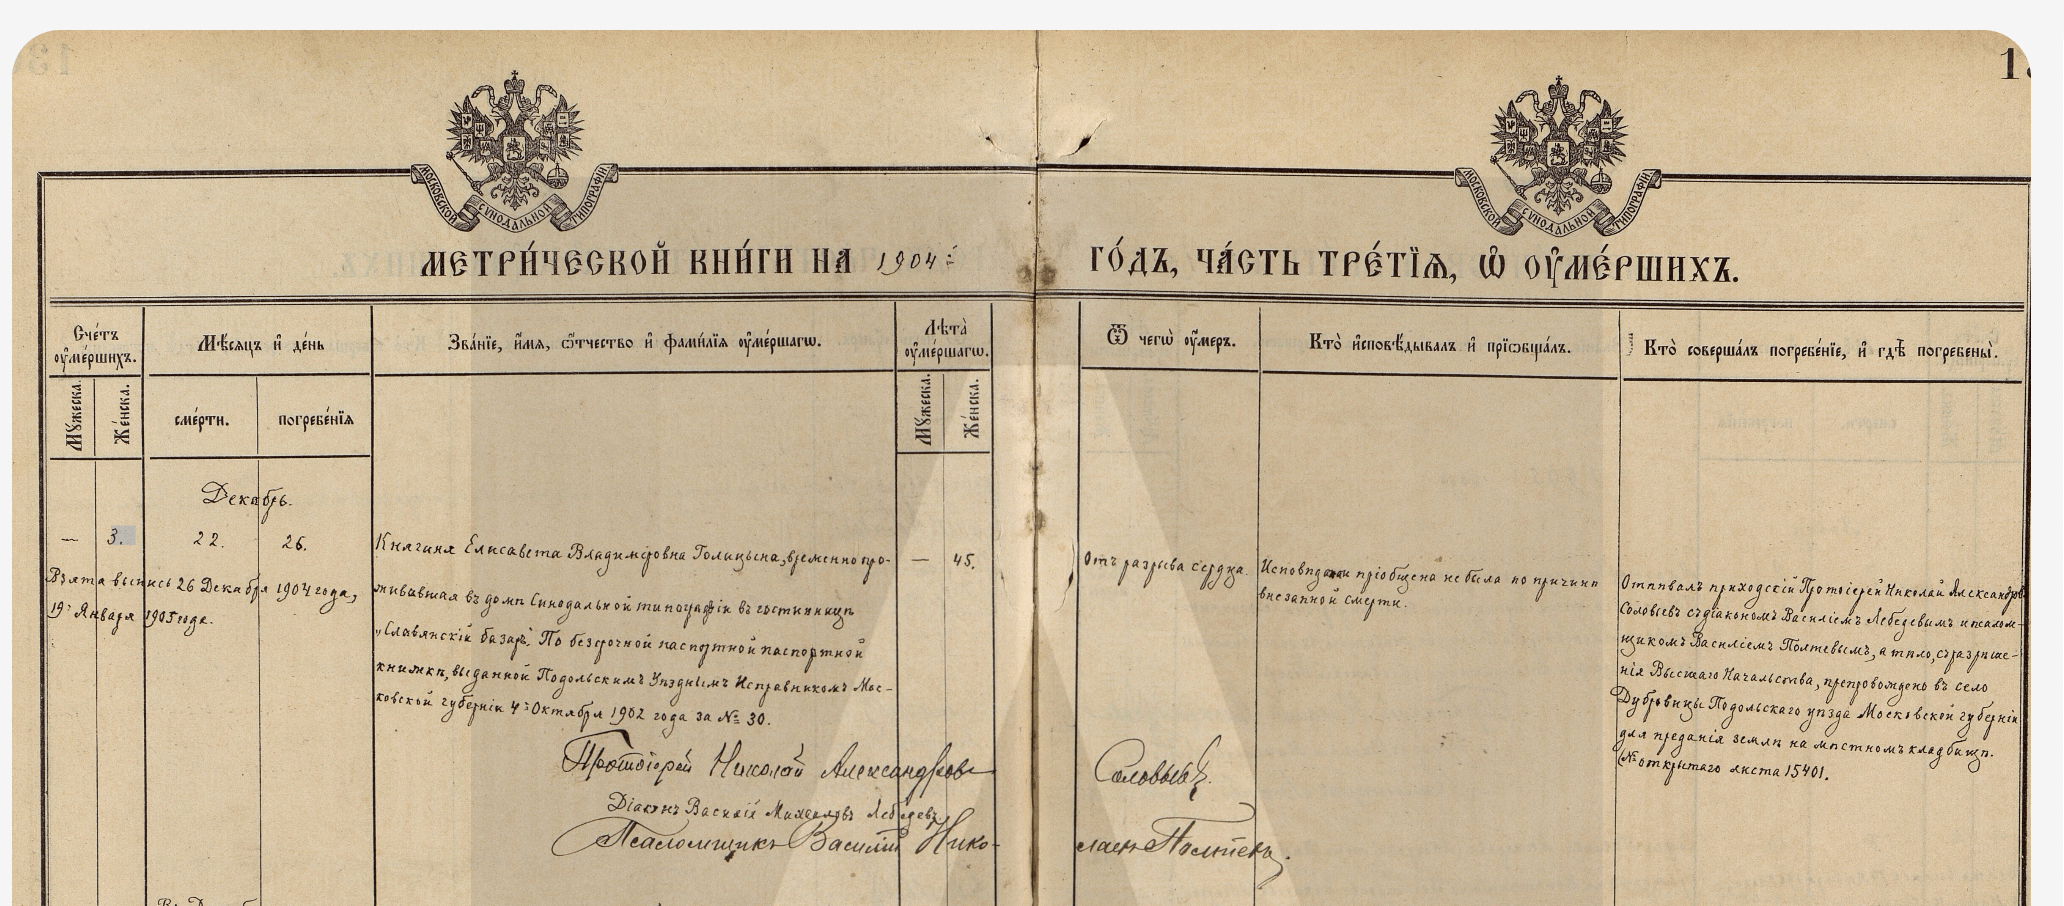 13
МОСКОВСКОЙ СѴНОДАЛЬНОЙ ТИПОГРАФІИ
МОСКОВСКОЙ СѴНОДАЛЬНОЙ ТИПОГРАФІИ
МЕТРИ́ЧЕСКОЙ КНИ́ГИ НА 1904:
ГО́ДЪ, ЧА́СТЬ ТРЕ́ТІѦ, Ѡ҆ ОУ҆МЕ́РШИХЪ.
Сче́тъ оу҆ме́ршихъ.
Мꙋ́жеска.
Же́нска.
Мѣ́сѧцъ и҆ де́нь
сме́рти.
погребе́нїѧ
Зва́нїе, и҆́мѧ, ѻ҆́тчество и҆ фами́лїѧ оу҆ме́ршагѡ.
Лѣ̀та оу҆ме́ршагѡ.
Мꙋ́жеска.
Же́нска.
Ѿ чегѡ̀ оу҆́меръ.
Кто̀ и҆сповѣ́дывалъ и҆ прїѻбща́лъ.
Кто̀ соверша́лъ погребе́нїе, и҆ гдѣ̀ погребены̀.
Декабрь.
—
3.
22.
26.
Взята выпись 26 Декабря 1904 года,
19: Января 1905 года.
Княгиня Елисавета Владиміровна Голицына, временно про-
живавшая въ домѣ Синодальной типографіи въ гостинницѣ
„Славянскій базаръ". По безсрочной паспортной паспортной
книжкѣ, выданной Подольскимъ Уѣзднымъ Исправникомъ Мос-
ковской губерніи 4: Октября 1902 года за № 30.
—
45.
Отъ разрыва сердца.
Исповѣдана и пріобщена не была по причинѣ
внезапной смерти.
Отпѣвалъ приходскій Протоіерей Николай Александровъ
Соловьевъ съ діакономъ Василіемъ Лебедевымъ и псалом-
щикомъ Василіемъ Полтевымъ, а тѣло, съ разрѣше-
нія Высшаго Начальства, препровождено въ село
Дубровицы Подольскаго уѣзда Московской губерніи
для преданія землѣ на мѣстномъ кладбищѣ.
(№ открытаго листа 15401.
Протоіерей Николай Александровъ Соловьевъ.
Діаконъ Василій Михаиловъ Лебедевъ
Псаломщикъ Василій Нико-
лаевъ Полтевъ.